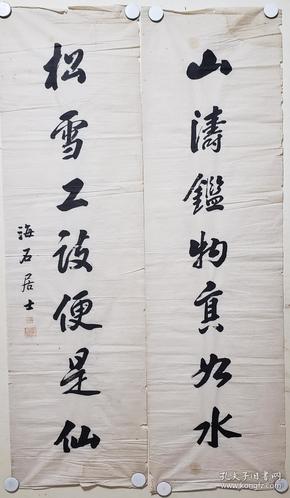 山濤鑑物真如水
松雪工詩便是仙
海石居士
孔夫子旧书网
www.kongfz.com